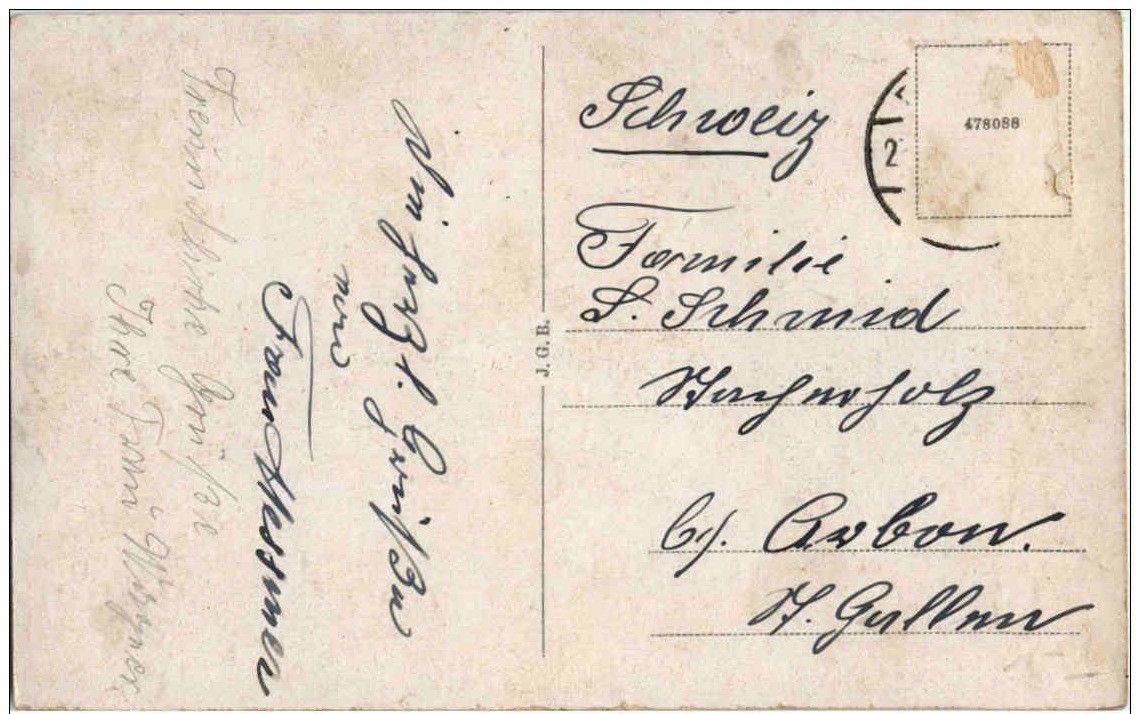 Viel herzl. Grüße
von
Frau Messmer
Freundliche Grüße
Ihre Frau Wagner.
J. G. B.
Schweiz
478088
2
Familie
S. Schmid
Stacherholz
b/. Arbon.
St. Gallen